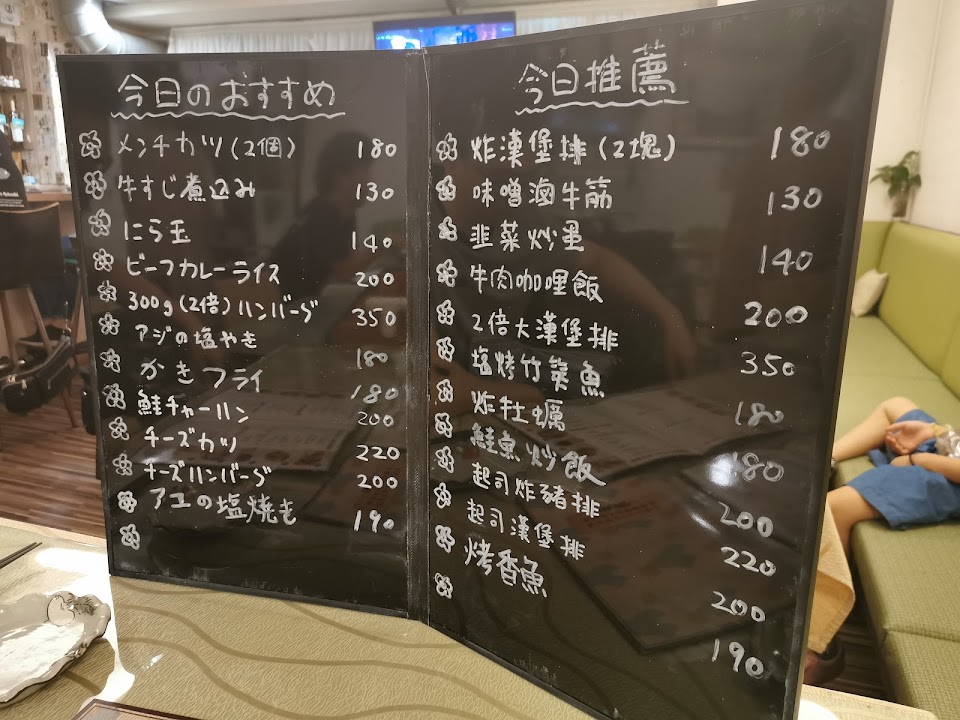 今日のおすすめ
メンチカツ(2個) 180
牛すじ煮込み 130
にら玉 140
ビーフカレーライス 200
300g(2倍)ハンバーグ 350
アジの塩やき 180
かきフライ 180
鮭チャーハン 200
チーズカツ 220
チーズハンバーグ 200
アユの塩焼き 190
今日推薦
炸漢堡排(2塊) 180
味噌滷牛筋 130
韭菜炒蛋 140
牛肉咖哩飯 200
2倍大漢堡排 350
塩烤竹筴魚 180
炸牡蠣 180
鮭魚炒飯 200
起司炸豬排 220
起司漢堡排 200
烤香魚 190